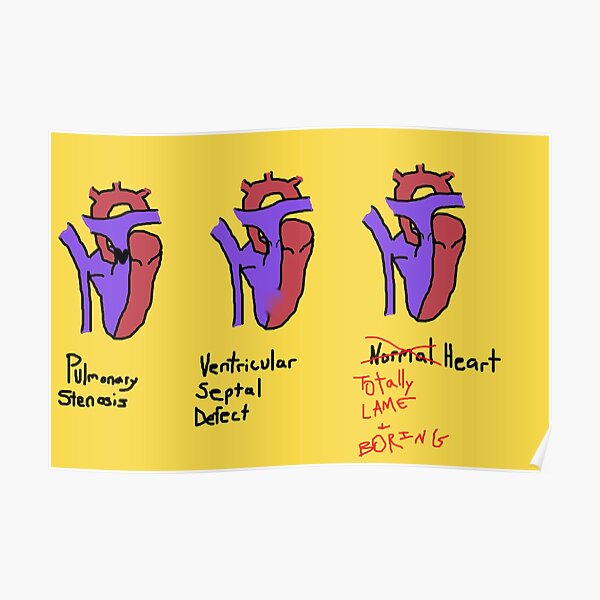 Pulmonary
Stenosis
Ventricular
Septal
Defect
Normal Heart
Totally
LAME
+
BORING